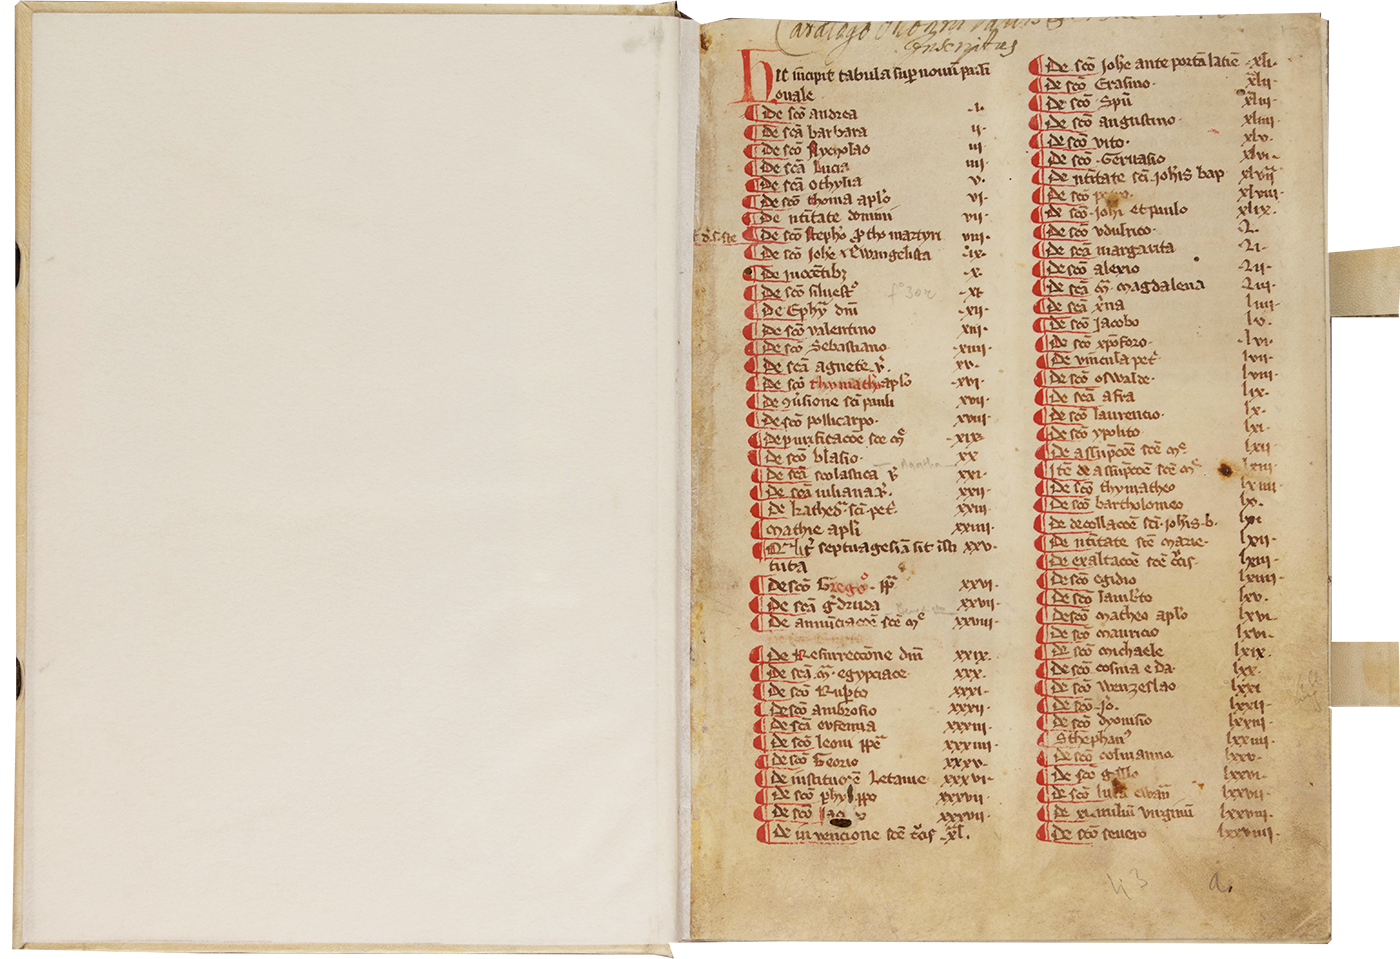 Catalogo
Inscriptus
Hic incipit tabula sup nouū passi
onale
De scō andrea .i.
De scā barbara ii
De scō Nycholao iii
De scā Lucia iiii
De scā othylia v.
De scō thoma aplo vi
De ntitate domini vii
De scō stepho ꝓtho martyri viii
De scō Johe ewangelista ix
De inocētibȝ x
De scō siluestº xi
De Ephya dnī xii
De scō valentino xiii
De scō Sebastiano xiiii
De scā agnete v̄. xv
De scō thymatheo aplo xvi
De ꝯuersione scī pauli xvii
De scō pollicarpo xviii
De purificacōe sce mᵉ xix
De scō blasio. xx
De scā scolastica v̄ xxi
De scā iuliana v̄. xxii
De kathedᵃ scī pet xxiii
Mathie aplī xxiiii
septuagesīa sit īsti xxv
tuta
De scō Gregoº pp xxvi
De scā gᵉdruda xxvii
De annūciacōe scē mᵉ xxviii
De Resurreccōne dnī xxix
De scā mᵃ egypciace xxx
De scō Rupto xxxi
De scō ambrosio xxxii
De scā eufemia xxxiii
De scō leoni ppe xxxiiii
De scō Georio xxxv
De institucōe Letanie xxxvi
De scō phylippo xxxvii
De scō xxxvii
De invencione scē cᵘcis xl.
De scō Johe ante portā latinē xli
De scō Erasmo xlii
De scō Spū xliii
De scō augustino xliiii
De scō vito xlv
De scō Geruasio xlvi
De ntitate scī Johis bap xlvii
De scō xlviii
De scō Johi et paulo xlix
De scō vdulrico L
De scā margarita Li
De scō alexio Lii
De scā mᵃ magdalena Liii
De scā xp̄na liiii
De scō Jacobo lv
De scō xpoforo lvi
De vincula pet lvii
De scō oswalde lviii
De scā afra lix
De scō laurencio lx
De scō ypolito lxi
De assūpcōe scē mᵉ lxii
Itē de assūpcōe scē mᵉ lxiii
De scō thymatheo lxiiii
De scō bartholomeo lxv
De decollacōe scī Johis b. lxi
De ntitate scē marie lxii
De exaltacōe scē cᵘcis lxiii
De scō egidio lxiiii
De scō lambto lxv
De scō matheo aplo lxvi
De scō mauricio lxvi
De scō michaele lxix
De scō cosma e da lxx
De scō wenzeslao lxxi
De scō Jo. lxxii
De scō dyonisio lxxiii
Sthephanº lxxiiii
De scō colmanno lxxv
De scō gallo lxxvi
De scō luca ewan lxxvii
De xi miliū virginū lxxviii
De scō seuero lxxviiii